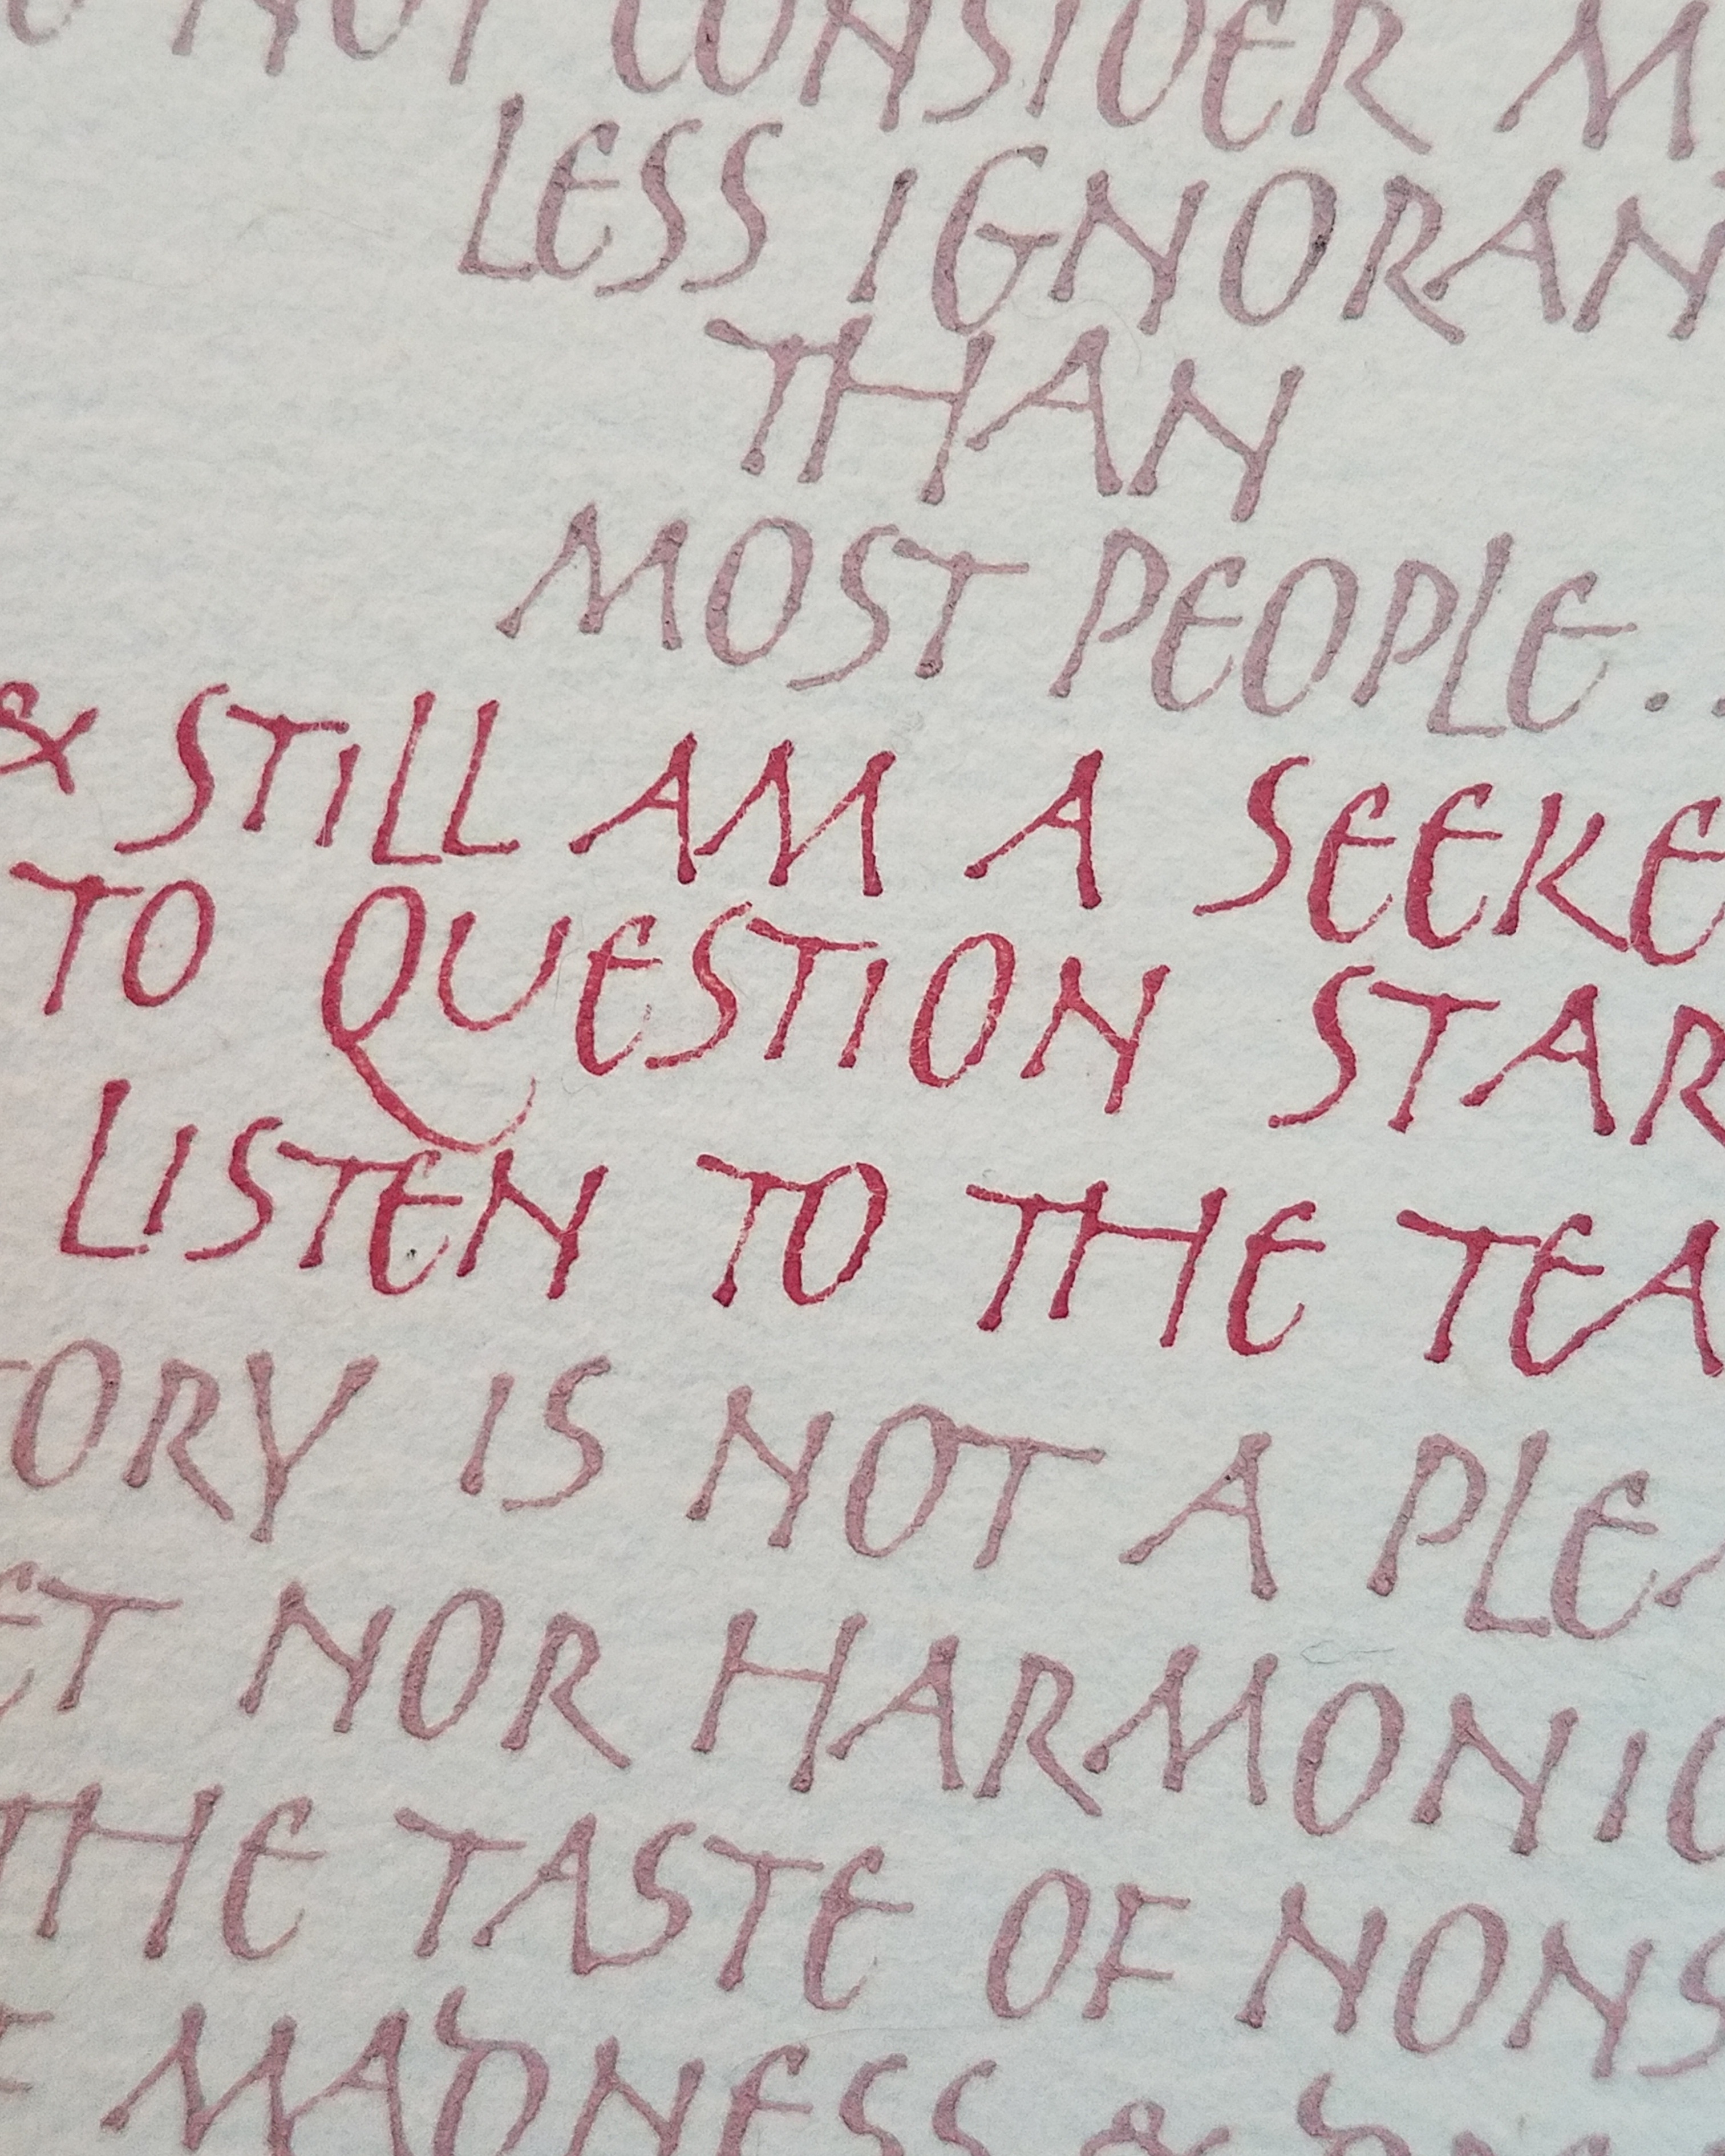 NOT CONSIDER M
LESS IGNORAN
THAN
MOST PEOPLE..
& STILL AM A SEEKE
TO QUESTION STAR
LISTEN TO THE TEA
TORY IS NOT A PLEA
ET NOR HARMONIO
THE TASTE OF NONS
F MADNESS &